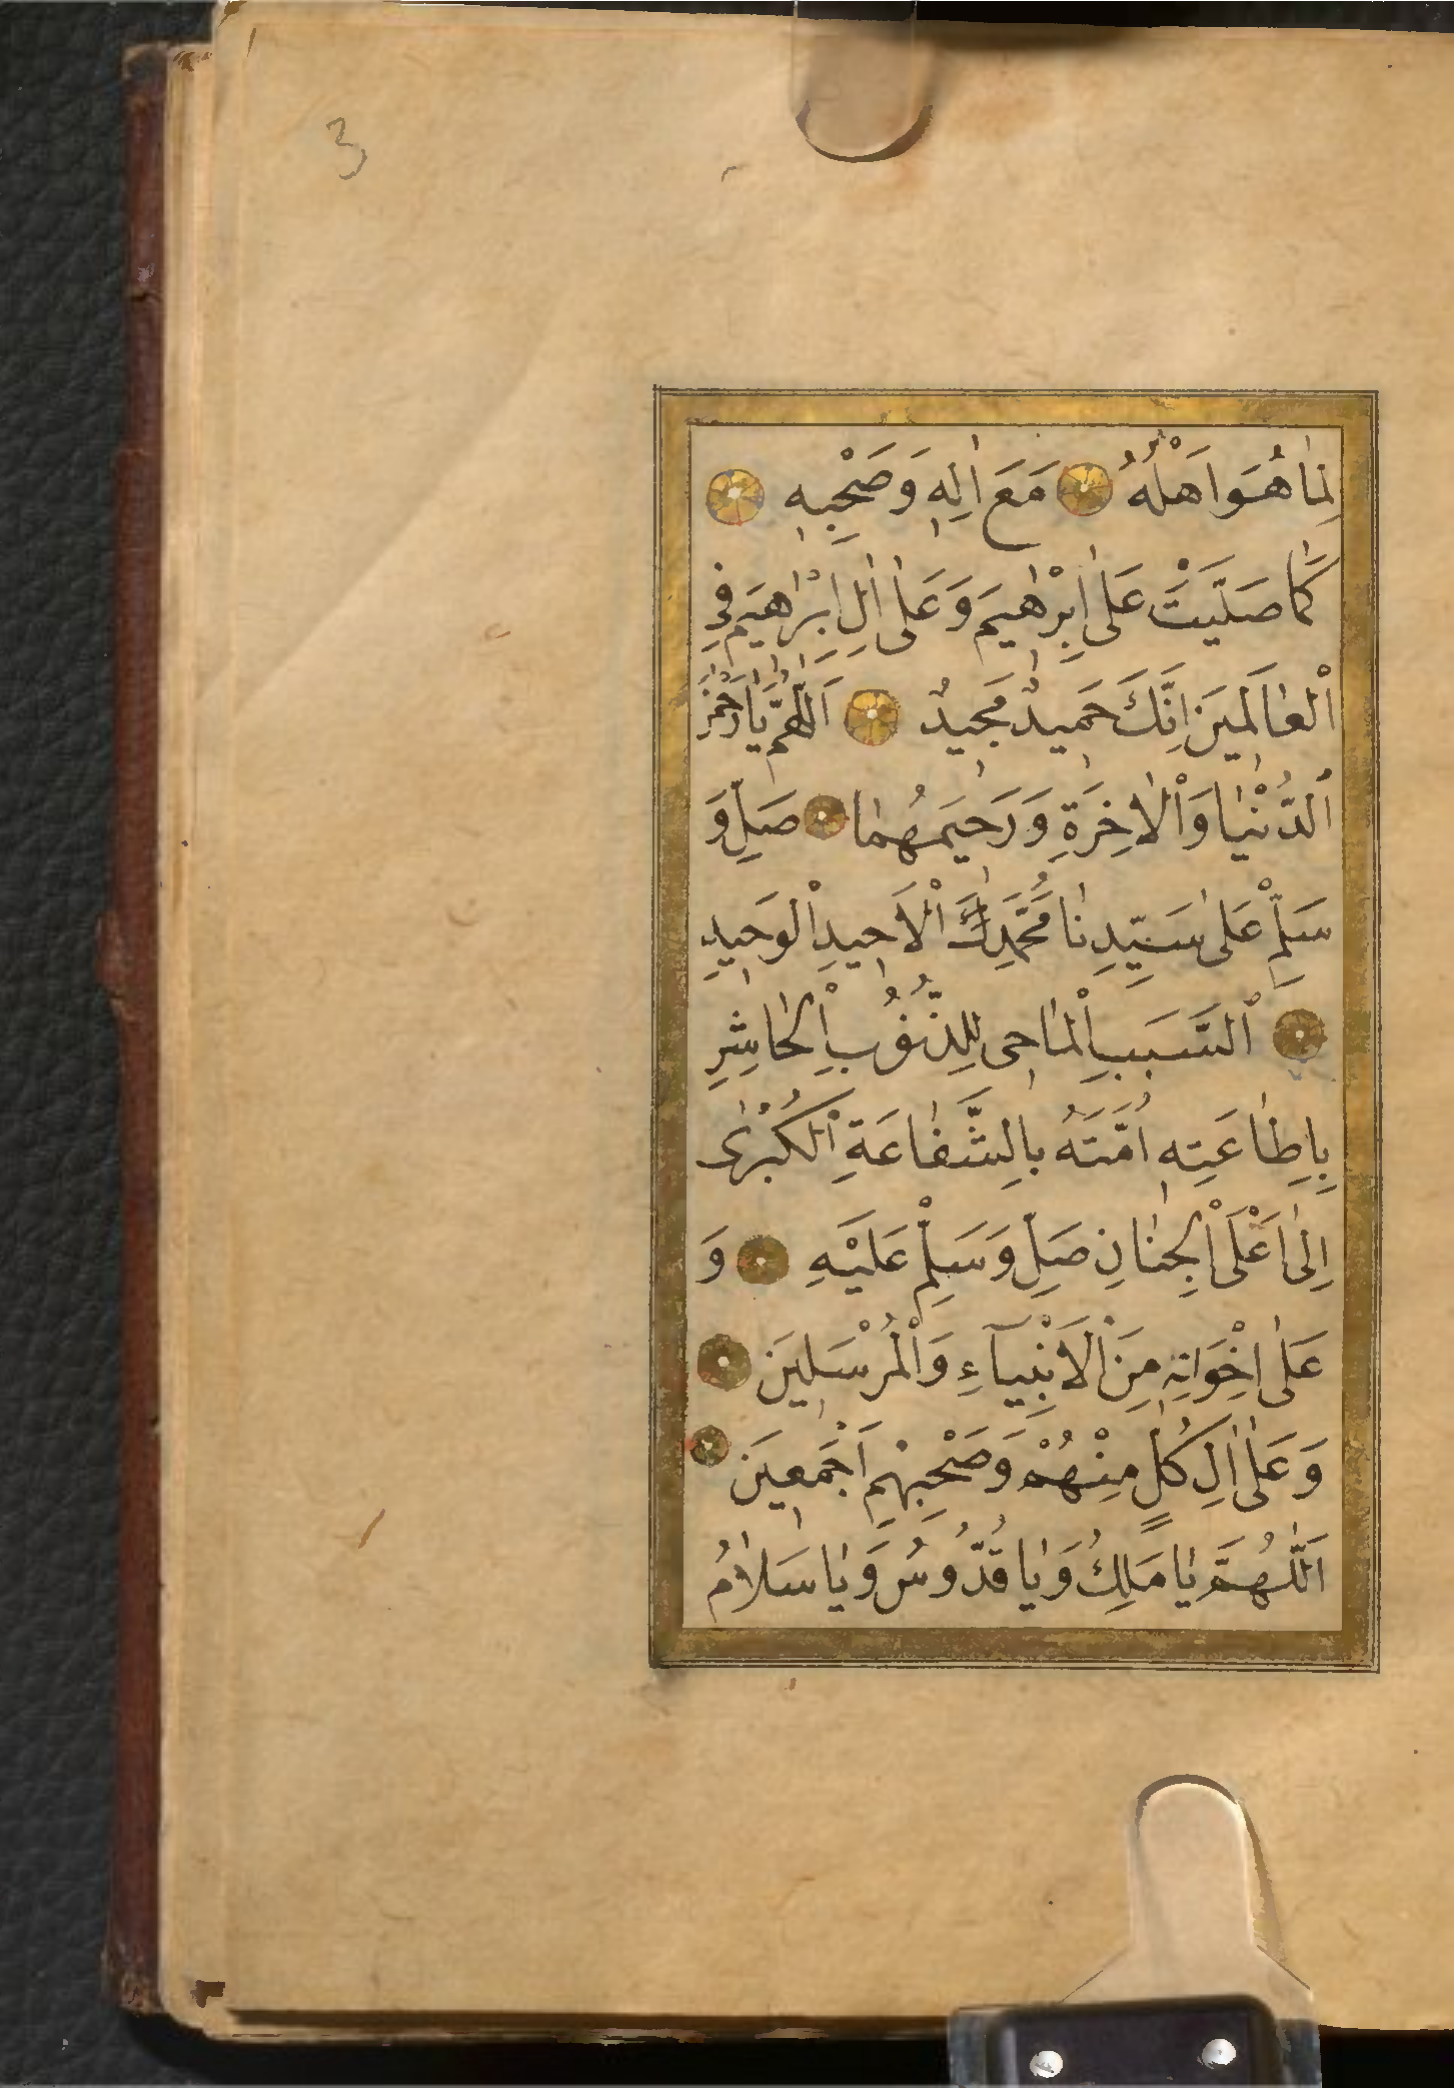 3
لِمَا هُوَ اَهْلُهُ مَعَ اٰلِهٖ وَصَحْبِهٖ
كَمَا صَلَّيْتَ عَلٰى اِبْرٰهِيمَ وَعَلٰى اٰلِ اِبْرٰاهِيمَ فِي
اْلعٰالَمِينَ اِنَّكَ حَمِيدٌ مَجِيدٌ اَللّٰهُمَّ يٰا رَحْمٰنَ
اْلدُّنْيٰا وَاْلاٰخِرَةِ وَرَحِيمَهُمٰا صَلِّ وَ
سَلِّمْ عَلٰى سَيِّدِنٰا مُحَمَّدِكَ اْلاَحِيدِ اْلوَحِيدِ
اْلسَّبَبِ اْلمٰاحِى لِلذُّنُوُبِ اْلحٰاشِرِ
بِاِطٰاعَتِهٖ اُمَّتَهُ بِالشَّفٰاعَةِ اْلكُبْرٰى
اِلٰى اَعْلَى اْلجِنٰانِ صَلِّ وَسَلِّمْ عَلَيْهِ وَ
عَلٰى اِخْوَانِهٖ مِنَ اْلاَنْبِيآءِ وَاْلمُرْسَلِينَ
وَعَلٰى اٰلِ كُلٍّ مِنْهُمْ وَصَحْبِهِمْ اَجْمَعِينَ
اَللّٰهُمَّ يٰا مَلِكُ وَيٰا قُدُّوسُ وَيٰا سَلاٰمُ